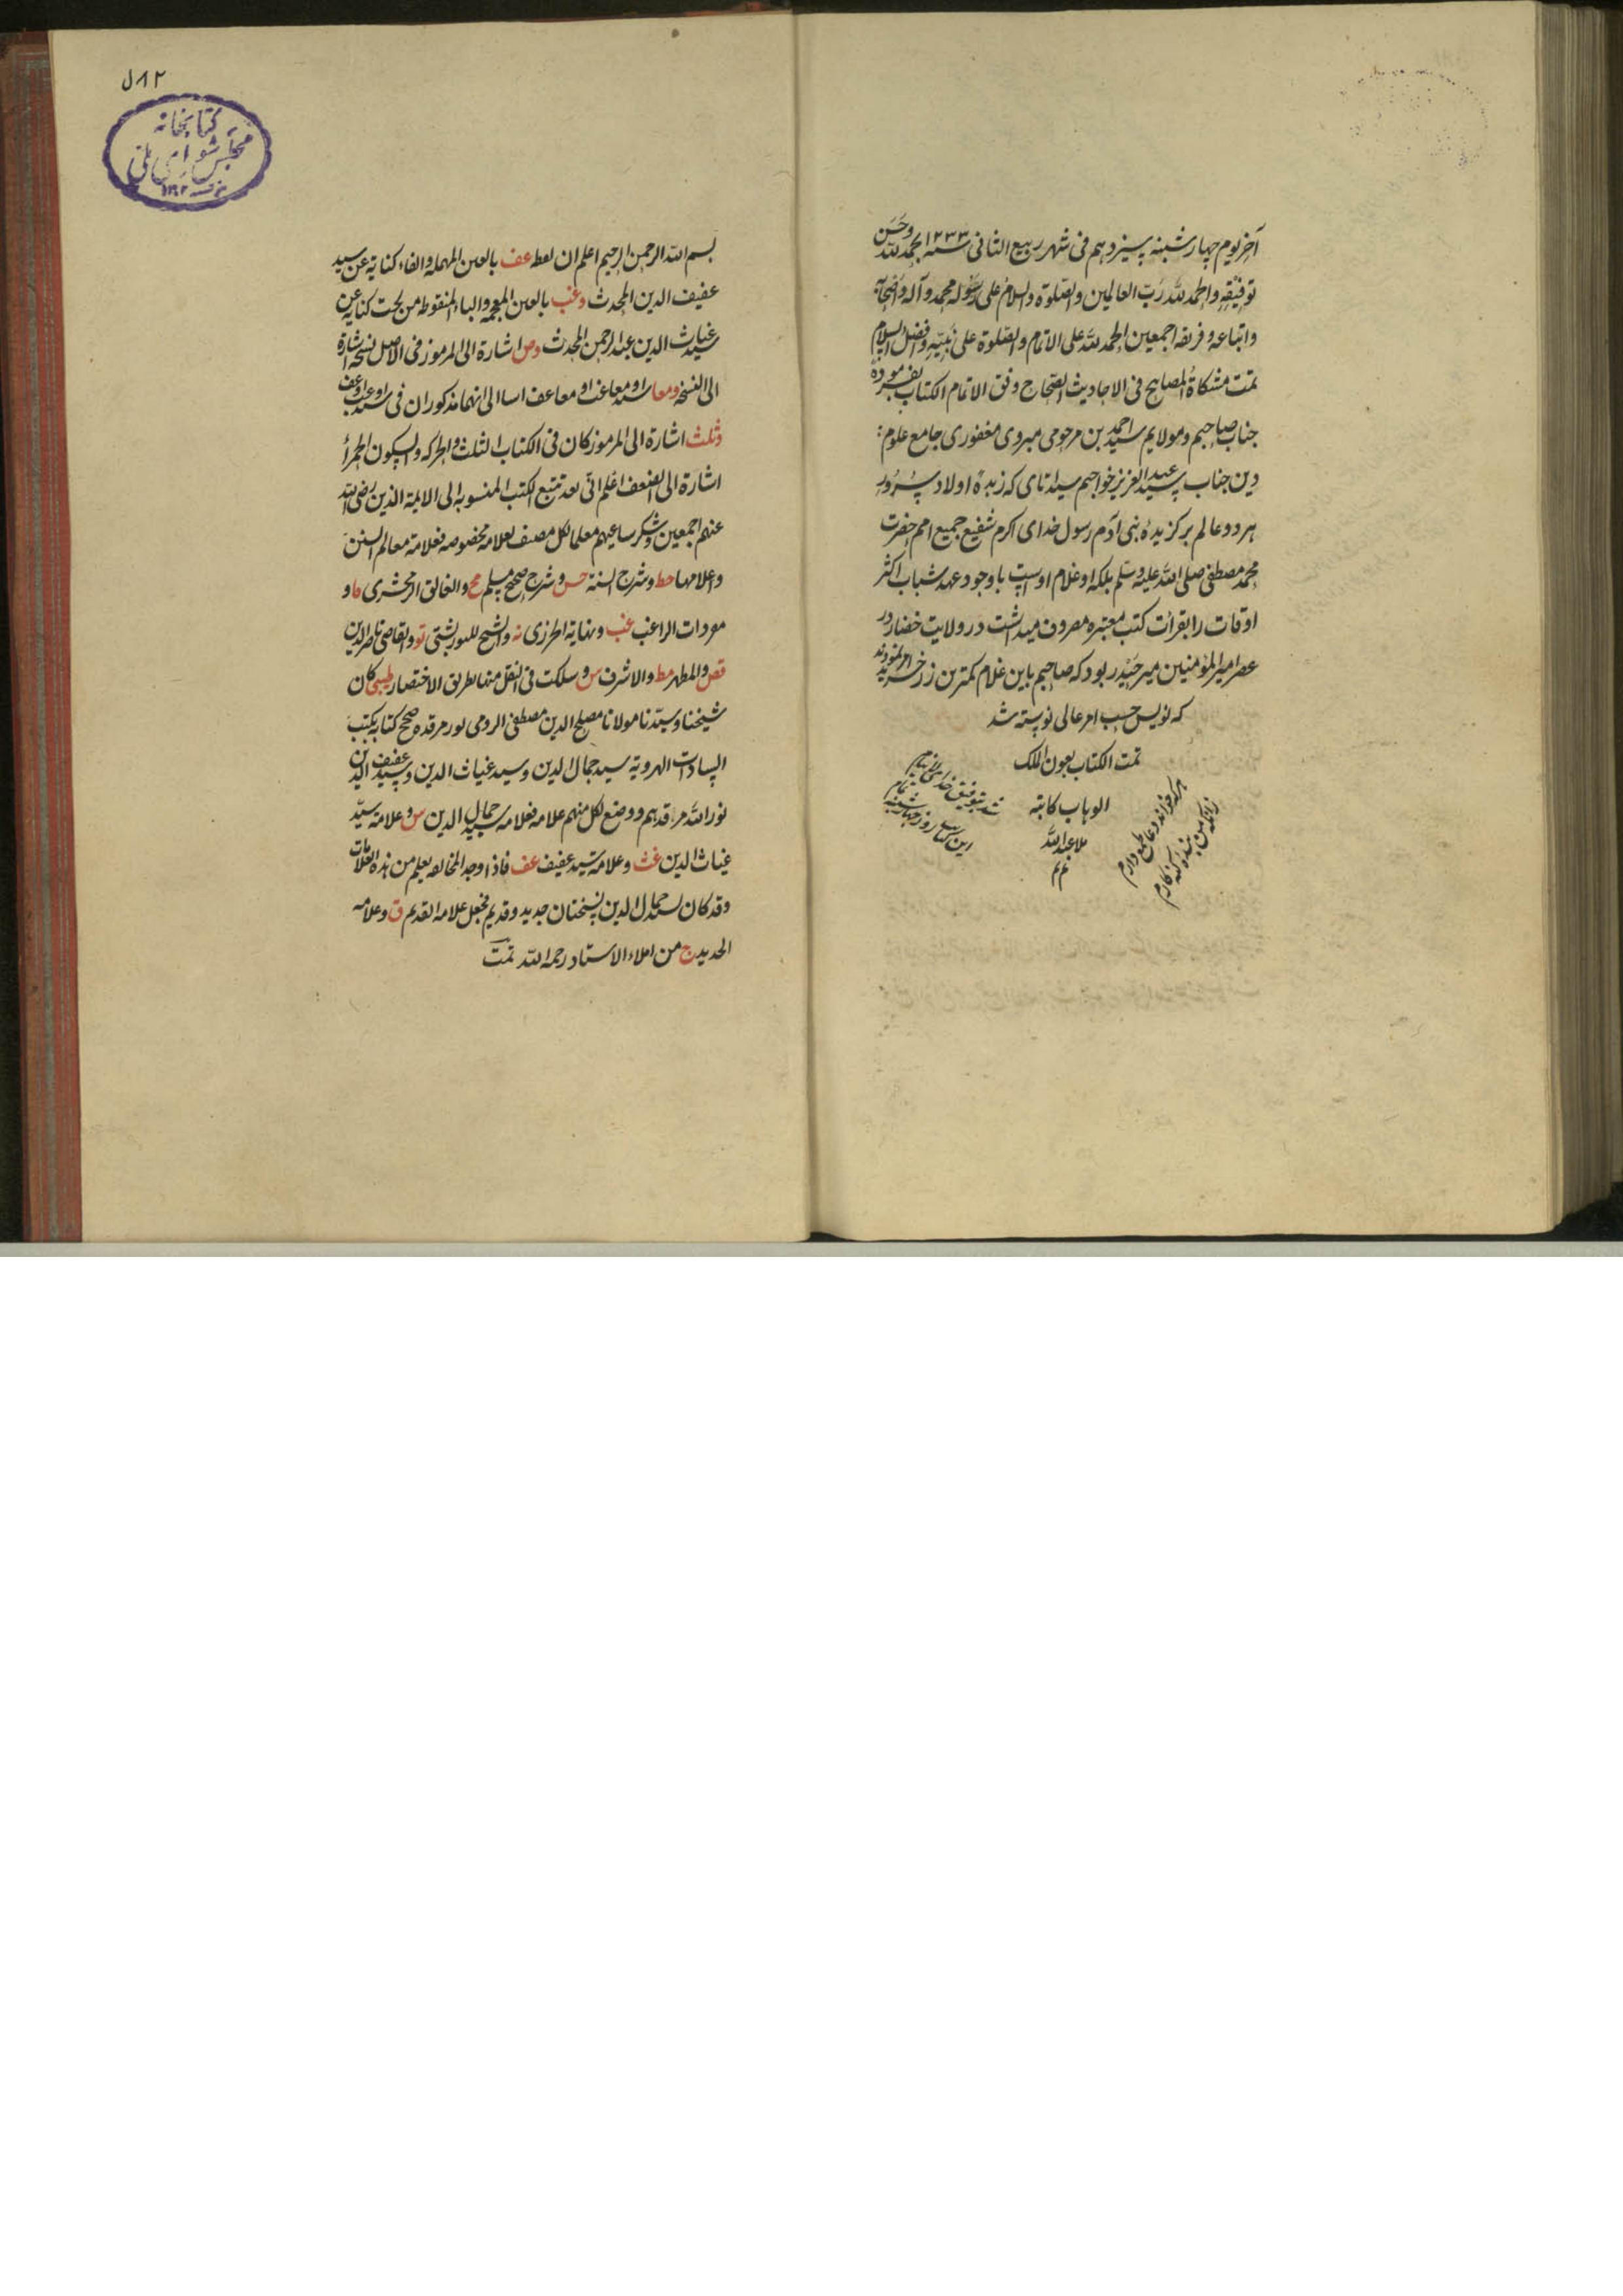 آخر یوم چهارشنبه سیزدهم فی شهر ربیع الثانی سنه ۱۲۳۳ بحمد لله وحسن
توفیقه والحمد لله رب العالمین والصلوة والسلام علی رسوله محمد وآله واصحابه
واتباعه وفریقه اجمعین الحمد لله علی الاتمام والصلوة علی نبیّه وافضل السلام
تمت مشکاة المصابیح فی الاحادیث الصحاح وفق الاتمام الکتاب بفرموده
جناب صاحبیم ومولایم سید احمد بن مرحومی مبروی مغفوری جامع علوم
دین جناب سید عبد العزیز خواجیم که زبدهٔ اولاد سرور
هر دو عالم برگزیدهٔ بنی آدم رسول خدای اکرم شفیع جمیع امم حضرت
محمد مصطفی صلی الله علیه وسلم بلکه او غلام اوست باوجود عهد شباب اکثر
اوقات را بقرائت کتب معتبره مصروف میداشت در ولایت
عصر امیر المؤمنین میر حیدر بود که صاحبیم باین غلام کمترین زرخرید امر نمودند
که نویس حسب امر عالی نوبسته شد
تمت الکتاب بعون الملک
الوهاب کاتبه
ملا عبد الله
تم تم
هرکه خواند دعا طمع دارم
زانکه من بنده کنه کارم
شد بتوفیق خدای
این کتاب روز چهارشنبه تمام
۵۸۲
کتابخانه
مجلس شورای ملی
بسم الله الرحمن الرحیم اعلم ان لفظ عف بالعین المهملة والفاء کنایة عن سید
عفیف الدین المحدث وغب بالغین المعجمة والباء المنقوطه من تحت کنایة عن
سید غیاث الدین عبد الرحمن المحدث وص اشارة الی المرموز فی الاصل نسخه اشارة
الی النسخة ومعا او معاغب او معاعف الی انهما مذکوران فی
وثلث اشارة الی المرموز کان فی الکتاب الثلث والحرکه والسکون الحمرأ
اشارة الی الضعف اعلم انی بعد تتبع الکتب المنسوبه الی الایمة الذین رضی الله
عنهم اجمعین وشکر ساعیهم معلما لکل مصنف بعلامه مخصوصه فعلامة معالم السنن
واعلامها خط وشرح السنة حس وشرح صحیح مسلم مح والفائق الزمخشری فا و
مفردات الراغب غب ونهایة الجزری نه والشیخ للتوربشتی تو والقاضی ناصر الدین
قض والمظهر مظ والاشرف س وسلکت فی النقل منها طریق الاختصار طیبی کان
شیخنا وسیدنا مولانا مصلح الدین مصطفی الرومی نور مرقده صحح کتابه بکتب
السادات الهرویه سید جمال الدین وسید غیاث الدین وسید عفیف الدین
نور الله مرقدهم ووضع لکل منهم علامه فعلامه سید جمال الدین س وعلامة سید
غیاث الدین غث وعلامة سید عفیف عف فاذا وجد المخالفه یعلم من هذه العلامات
وقد کان لسید جمال الدین نسختان جدید وقدیم فجعل علامه القدیم ق وعلامه
الجدید ج من املاء الاستاد رحمه الله تمت